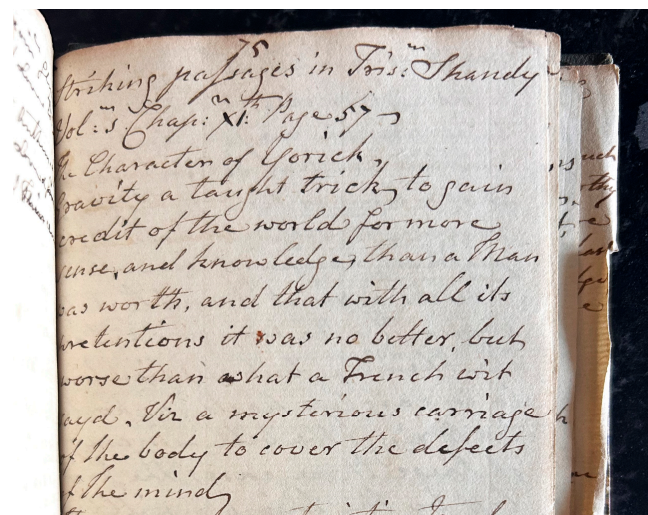 75
Striking passages in Tris:m Shandy
Vol:s Chap: XI:th Page 57
The Character of Yorick,
Gravity a taught trick, to gain
credit of the world for more
sense, and knowledge, than a Man
was worth, and that with all its
pretentions it was no better, but
worse than what a French wit
sayd. Viz a mysterious carriage
of the body to cover the defects
of the mind,